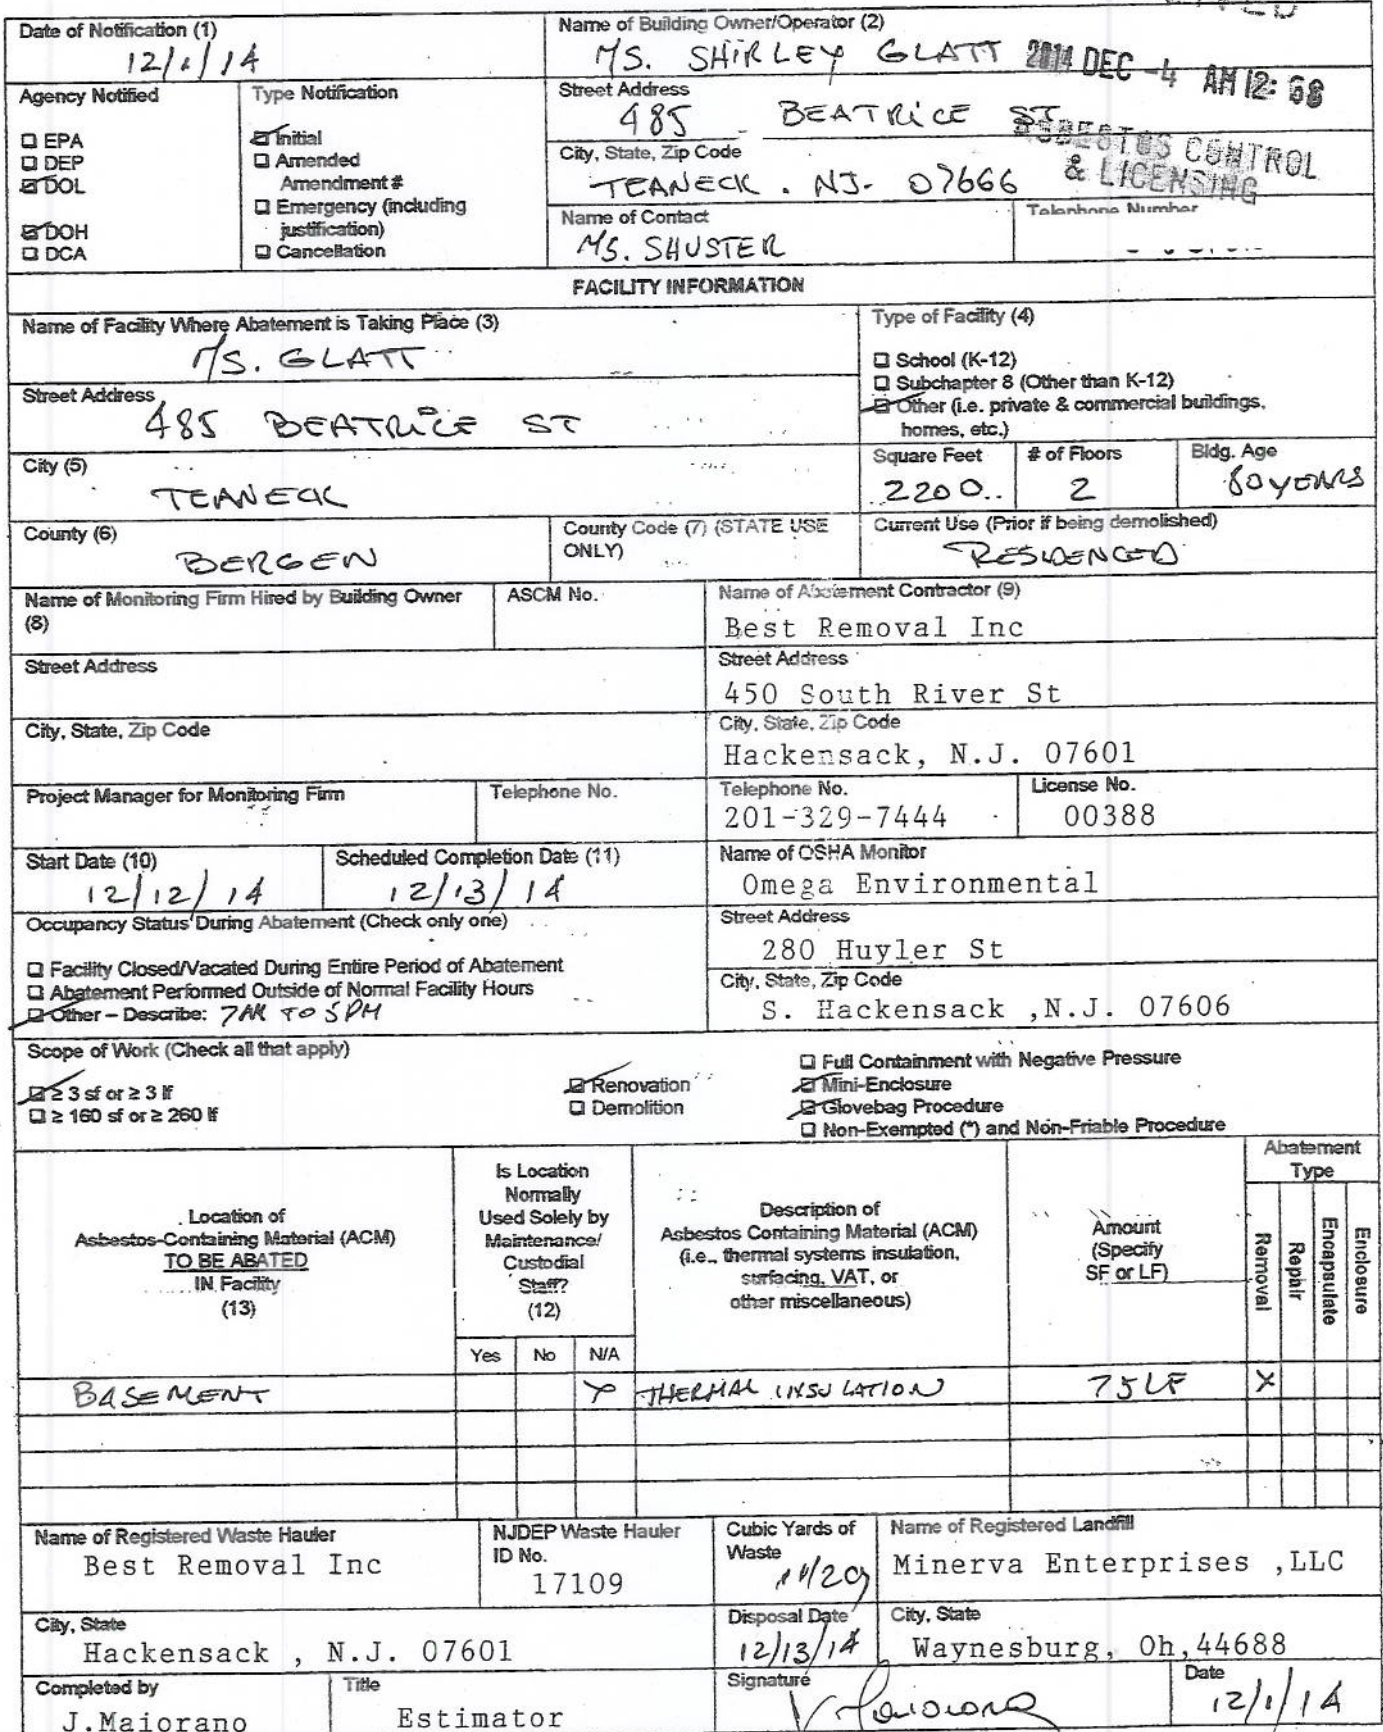 Date of Notification (1)
12/1/14
Name of Building Owner/Operator (2)
MS. SHIRLEY GLATT
2014 DEC -4 AM 12: 58
Agency Notified
☐ EPA
☐ DEP
☑ DOL
☑ DOH
☐ DCA
Type Notification
☑ Initial
☐ Amended
Amendment #
☐ Emergency (including
justification)
☐ Cancellation
Street Address
485 BEATRICE ST
ASBESTOS CONTROL
& LICENSING
City, State, Zip Code
TEANECK. NJ- 07666
Name of Contact
MS. SHUSTER
Telephone Number
FACILITY INFORMATION
Name of Facility Where Abatement is Taking Place (3)
MS. GLATT
Type of Facility (4)
☐ School (K-12)
☐ Subchapter 8 (Other than K-12)
☑ Other (i.e. private & commercial buildings,
homes, etc.)
Street Address
485 BEATRICE ST
City (5)
TEANECK
Square Feet
2200
# of Floors
2
Bldg. Age
80 YEARS
County (6)
BERGEN
County Code (7) (STATE USE
ONLY)
Current Use (Prior if being demolished)
Name of Monitoring Firm Hired by Building Owner
(8)
ASCM No.
Name of Abatement Contractor (9)
Best Removal Inc
Street Address
Street Address
450 South River St
City, State, Zip Code
City, State, Zip Code
Hackensack, N.J. 07601
Project Manager for Monitoring Firm
Telephone No.
Telephone No.
201-329-7444
License No.
00388
Start Date (10)
12/12/14
Scheduled Completion Date (11)
12/13/14
Name of OSHA Monitor
Omega Environmental
Occupancy Status During Abatement (Check only one)
☐ Facility Closed/Vacated During Entire Period of Abatement
☐ Abatement Performed Outside of Normal Facility Hours
☑ Other – Describe: 7AM TO 5PM
Street Address
280 Huyler St
City, State, Zip Code
S. Hackensack ,N.J. 07606
Scope of Work (Check all that apply)
☑ ≥ 3 sf or ≥ 3 lf
☐ ≥ 160 sf or ≥ 260 lf
☑ Renovation
☐ Demolition
☐ Full Containment with Negative Pressure
☑ Mini-Enclosure
☑ Glovebag Procedure
☐ Non-Exempted (*) and Non-Friable Procedure
Location of
Asbestos-Containing Material (ACM)
TO BE ABATED
IN Facility
(13)
Is Location
Normally
Used Solely by
Maintenance/
Custodial
Staff?
(12)
Yes No N/A
Description of
Asbestos Containing Material (ACM)
(i.e., thermal systems insulation,
surfacing, VAT, or
other miscellaneous)
Amount
(Specify
SF or LF)
Abatement
Type
Removal
Repair
Encapsulate
Enclosure
BASEMENT X THERMAL INSULATION 75 LF X
Name of Registered Waste Hauler
Best Removal Inc
NJDEP Waste Hauler
ID No.
17109
Cubic Yards of
Waste
Name of Registered Landfill
Minerva Enterprises ,LLC
City, State
Hackensack , N.J. 07601
Disposal Date
12/13/14
City, State
Waynesburg, Oh,44688
Completed by
J.Maiorano
Title
Estimator
Signature
Date
12/1/14